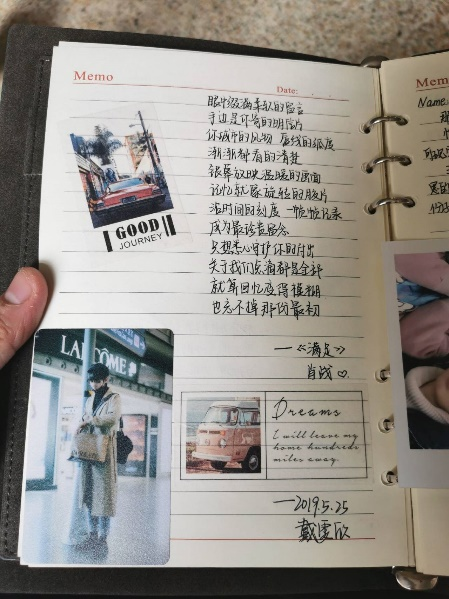 Memo
Date:
眼中缀满幸运的留言
手边是你寄的明信片
你城市的风物 唇线的弧度
渐渐都看的清楚
银幕放映温暖的画面
记忆就像旋转的胶片
沿时间的刻度 一帧帧记录
成为最珍贵留念
只想悉心守护你的付出
关于我们点滴都是全部
就算回忆变得模糊
也忘不掉那份最初
—《满足》
肖战♡
GOOD
JOURNEY
LANCÔME
Dreams
I will leave my
home hundreds
miles away.
—2019.5.25
戴雯欣
Mem
Name: